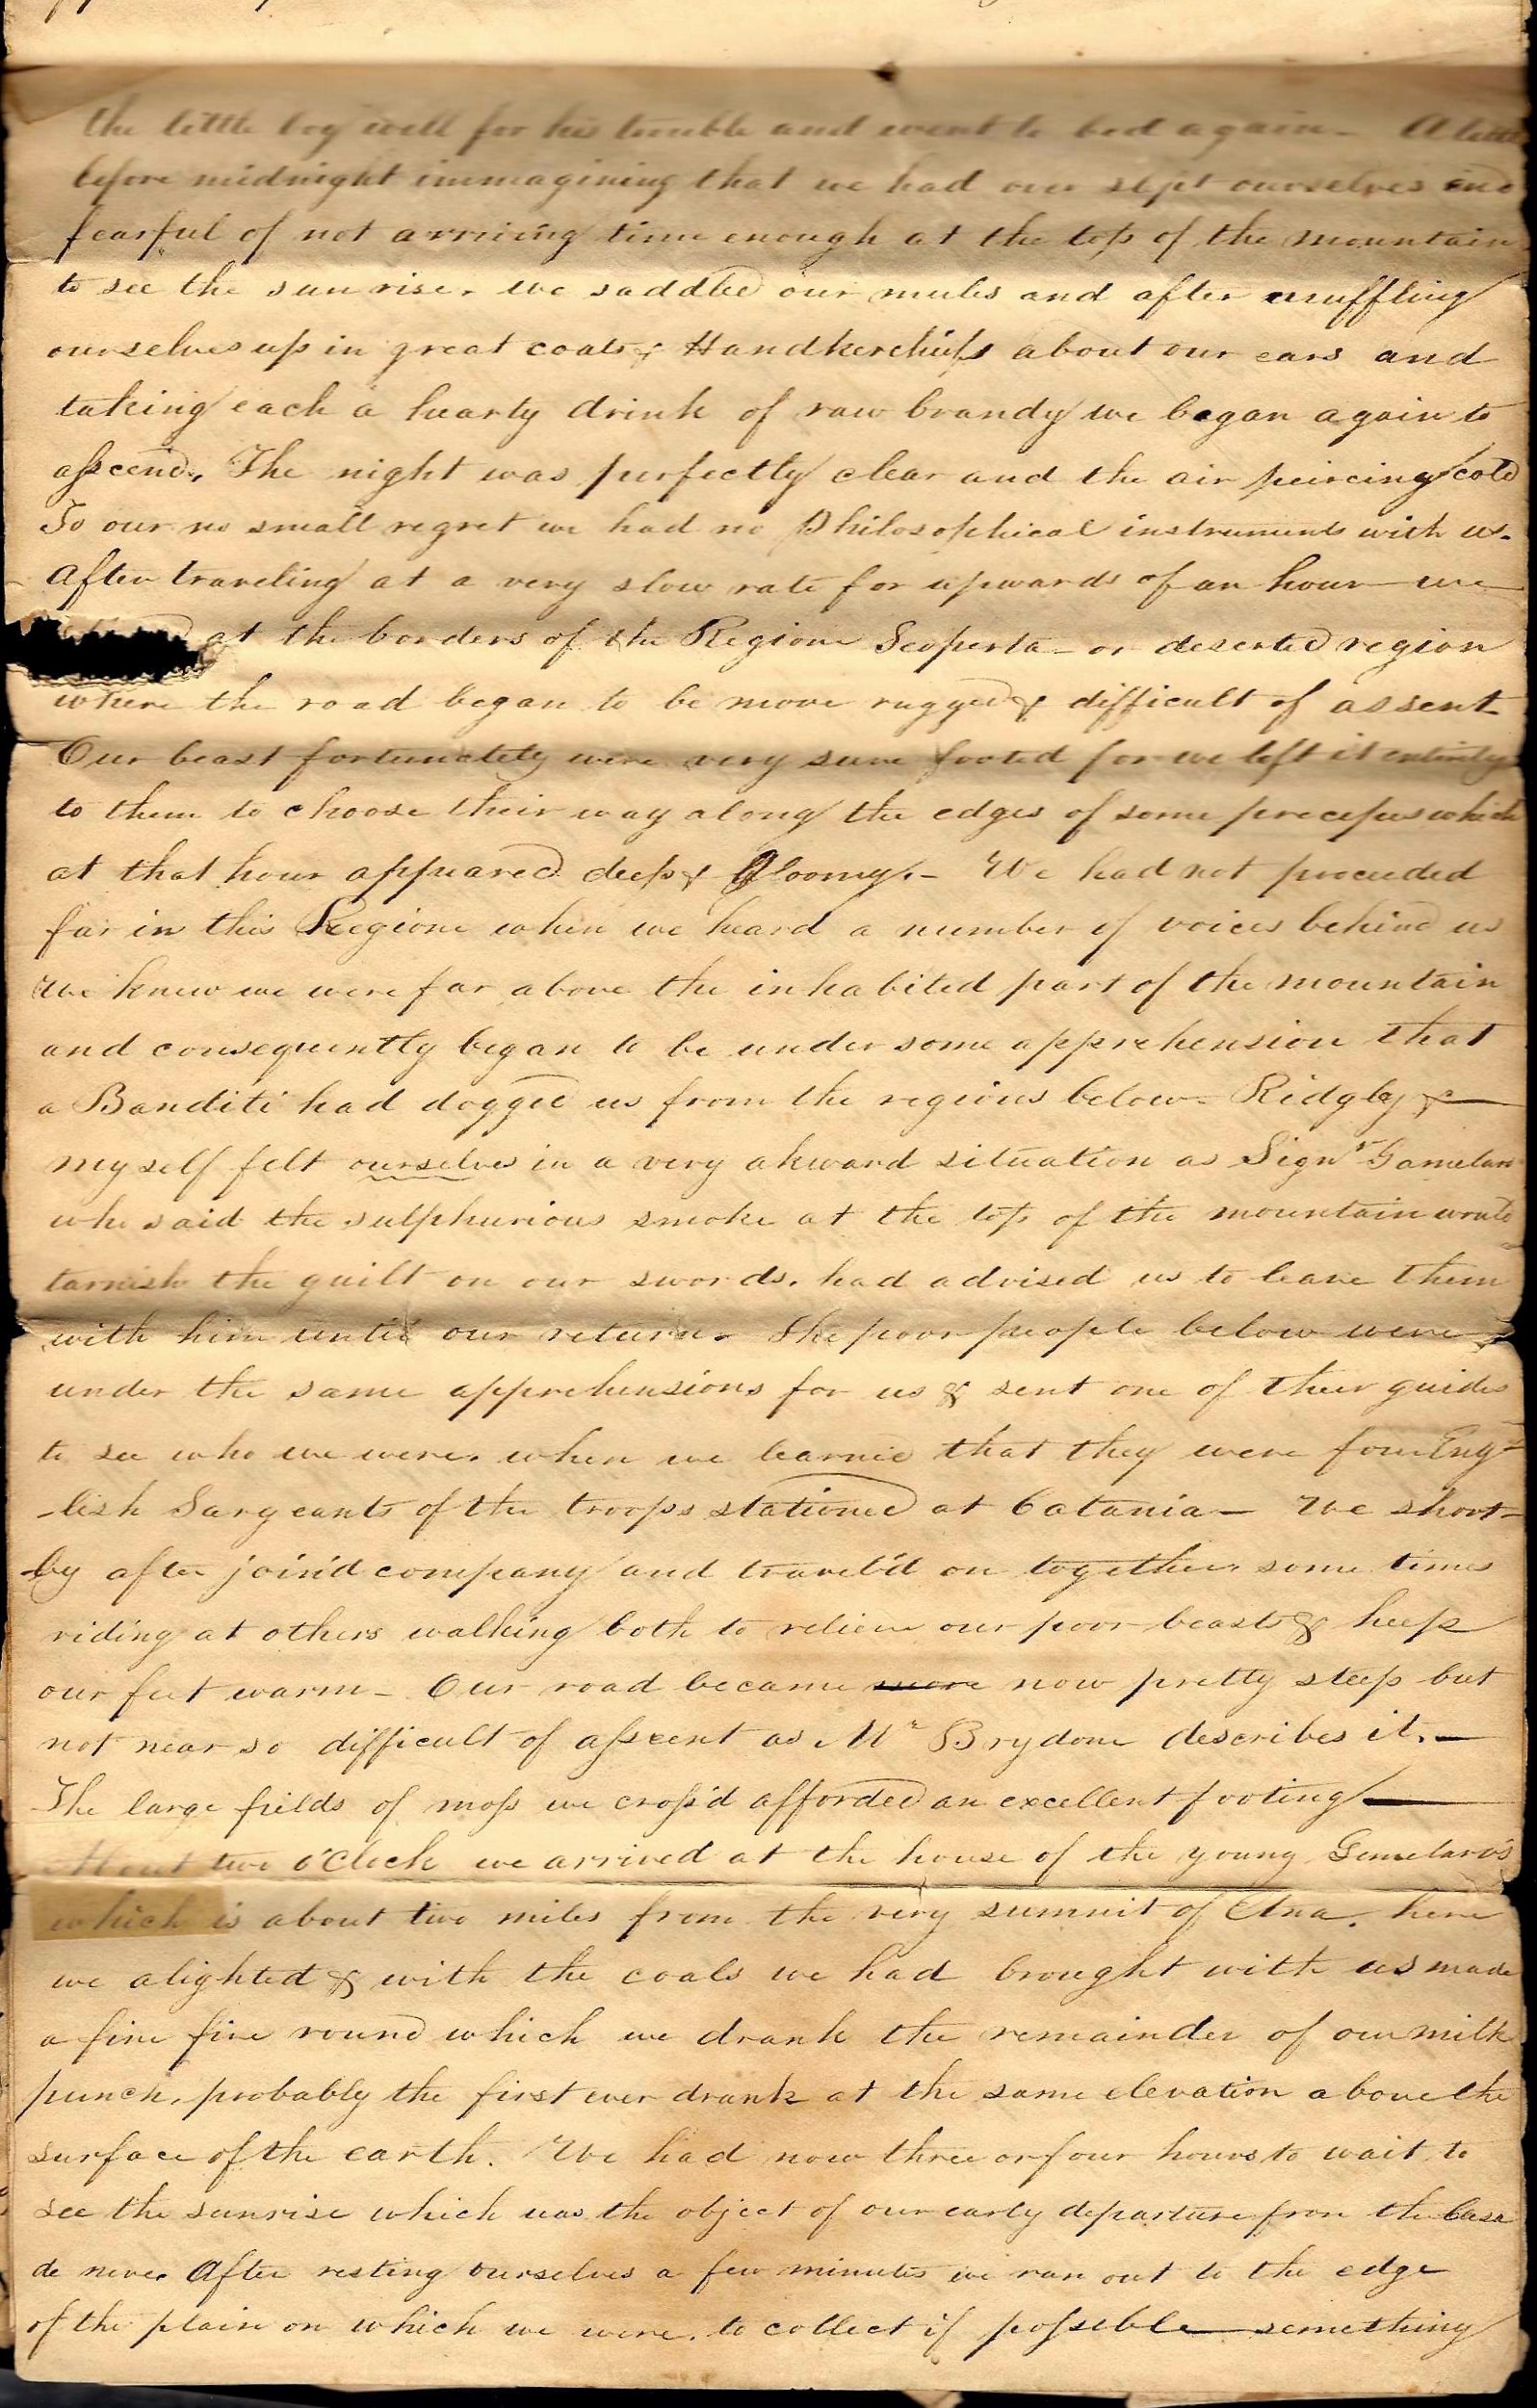 the little boy well for his trouble and went to bed again - A little
before midnight immagining that we had over slept ourselves and
fearful of not arriving time enough at the top of the mountain
to see the sun rise. we saddled our mules and after muffling
ourselves up in great coats & Handkerchiefs about our ears and
taking each a hearty drink of raw brandy we began again to
asscend. The night was perfectly clear and the air peircing cold
To our no small regret we had no Philosophical instruments with us.
After traveling at a very slow rate for upwards of an hour we
at the borders of the Regione Scoperta - or deserted region
where the road began to be more rugged & difficult of assent
Our beast fortunately were very sure footed for we left it entirely
to them to choose their way along the edges of some precepes which
at that hour appeared deep & Gloomy. - We had not proceeded
far in this Regione when we heard a number of voices behind us
We knew we were far above the inhabited part of the mountain
and consequently began to be under some apprehension that
a Banditi had dogged us from the regions below - Ridgly &
myself felt ourselves in a very akward situation as Signr Gamelaro
who said the sulphurious smoke at the top of the mountain would
tarnish the guilt on our swords. had advised us to leave them
with him until our return. The poor people below were
under the same apprehensions for us & sent one of their guides
to see who we were. when we learned that they were four Eng-
-lish Sargeants of the troops stationed at Catania - We short-
-ly after join'd company and travel'd on together some times
riding at others walking both to relieve our poor beasts & keep
our feet warm - Our road became more now pretty steep but
not near so difficult of asscent as Mr Brydone describes it. -
The large fields of moss we cross'd afforded an excellent footing -
About two o'Clock we arrived at the house of the young Gemelaro's
which is about two miles from the very summit of Etna. here
we alighted & with the coals we had brought with us made
a fine fire round which we drank the remainder of our milk
punch, probably the first ever drank at the same elevation above the
surface of the earth. We had now three or four hours to wait to
see the sunrise which was the object of our early departure from the Casa
de neve. After resting ourselves a few minutes we ran out to the edge
of the plain on which we were. to collect if possible something